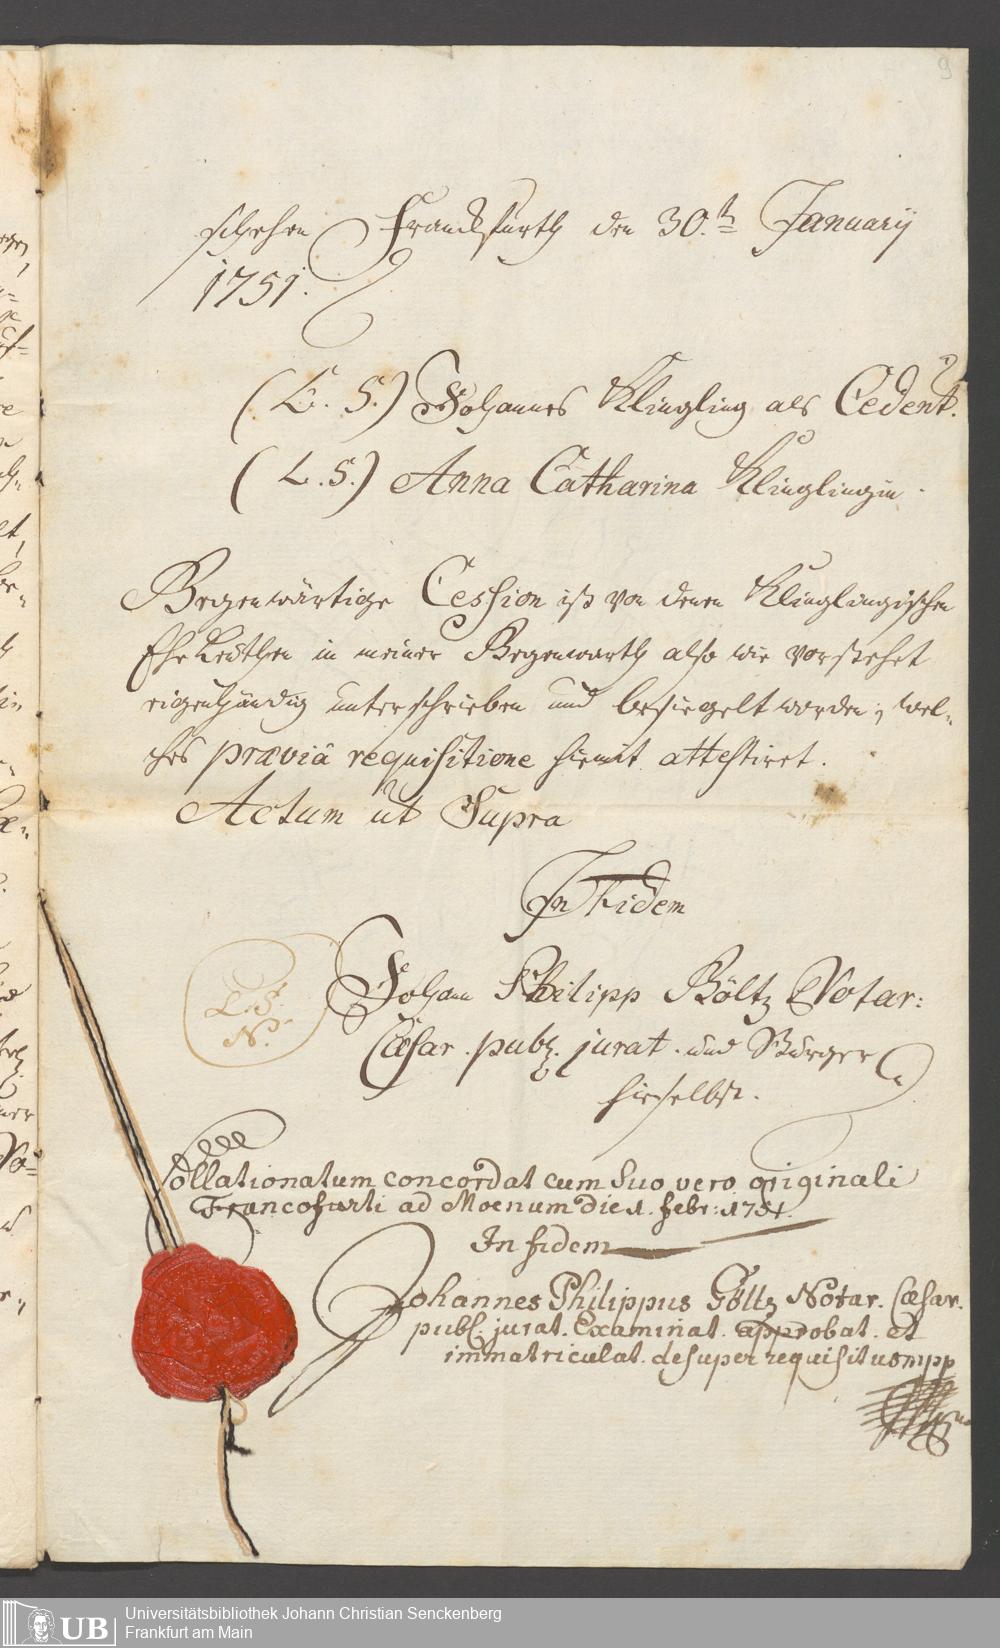 9
schehen Franckfurth den 30.th January
1751.
(L. S.) Johannes Klingling als Cedent.
(L. S.) Anna Catharina Klinglingin.
Gegenwärtige Cession ist von denen Klinglingischen
Ehe Leuthen in meiner Gegenwarth also wie vorstehet
eigenhändig unterschrieben und besiegelt worden, wel-
ches præviâ requisitione hiemit attestiret.
Actum ut Supra
In Fidem
L. S.
N.
Johann Philipp Göltz Notar:
Cæsar. publ. jurat. und Burger
hieselbst.
Collationatum concordat cum suo vero originali
Francofurti ad Moenum die 1. Febr: 1751.
In fidem
Johannes Philippus Göltz Notar. Cæsar.
publ. jurat. Examinat. approbat. et
immatriculat. desuper requisitus mpp
Universitätsbibliothek Johann Christian Senckenberg
UB Frankfurt am Main